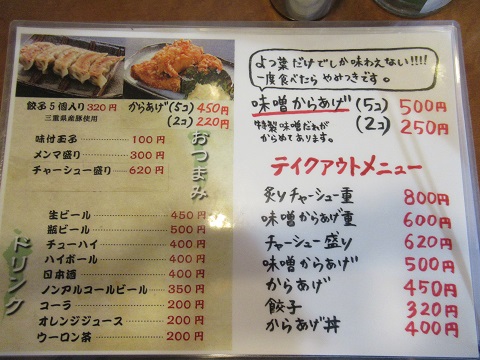 餃子5個入り 320円
三重県産豚使用
からあげ (5コ) 450円
(2コ) 220円
おつまみ
味付玉子 100円
メンマ盛り 300円
チャーシュー盛り 620円
ドリンク
生ビール 450円
瓶ビール 500円
チューハイ 400円
ハイボール 400円
日本酒 400円
ノンアルコールビール 350円
コーラ 200円
オレンジジュース 200円
ウーロン茶 200円
よつ葉だけでしか味わえない!!!!
一度食べたら やめつきです。
味噌からあげ (5コ) 500円
(2コ) 250円
特製味噌だれが
からめてあります。
テイクアウトメニュー
炙りチャーシュー重 800円
味噌からあげ重 600円
チャーシュー盛り 620円
味噌からあげ 500円
からあげ 450円
餃子 320円
からあげ丼 400円